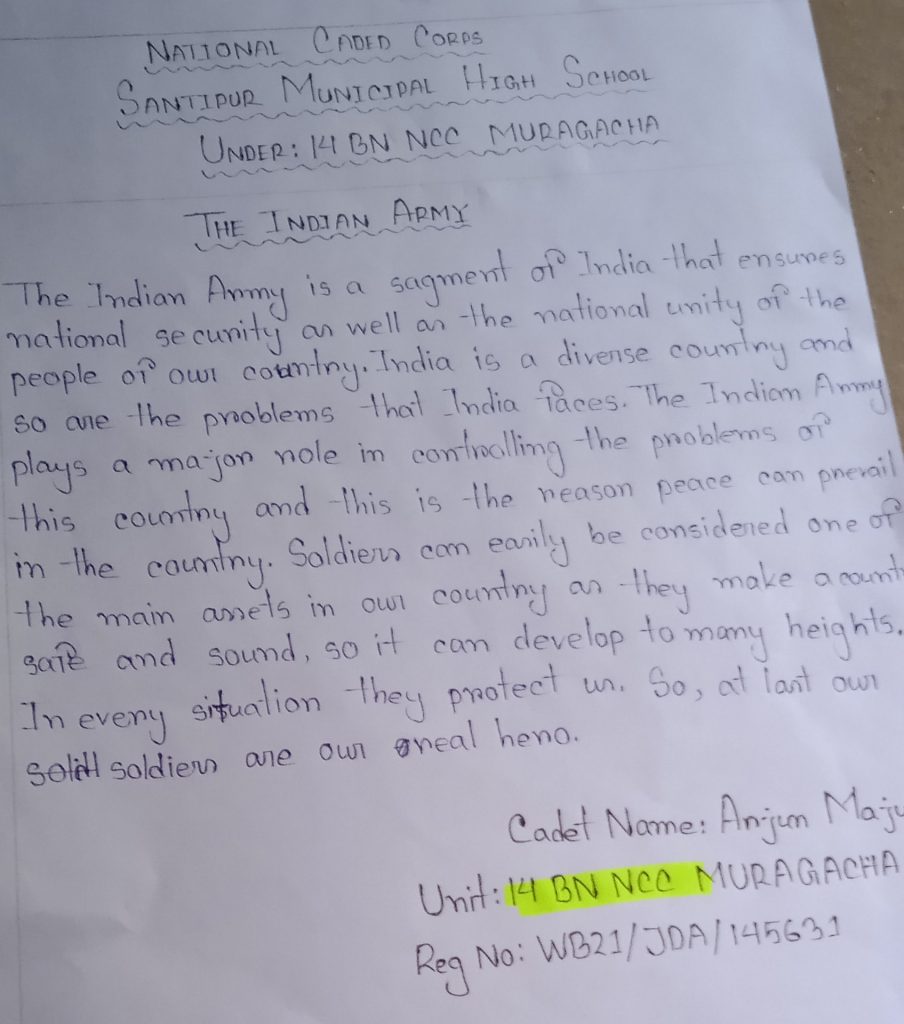 NATIONAL CADED CORPS
SANTIPUR MUNICIPAL HIGH SCHOOL
UNDER: 14 BN NCC MURAGACHA
THE INDIAN ARMY
The Indian Army is a sagment of India that ensures
national security as well as the national unity of the
people of our country. India is a diverse country and
so are the problems that India faces. The Indian Army
plays a major role in controlling the problems of
this country and this is the reason peace can prevail
in the country. Soldiers can easily be considered one of
the main assets in our country as they make a count
safe and sound, so it can develop to many heights.
In every situation they protect us. So, at last our
soldiers are our real hero.
Cadet Name: Arjun Maju
Unit: 14 BN NCC MURAGACHA
Reg No: WB21/JDA/145631